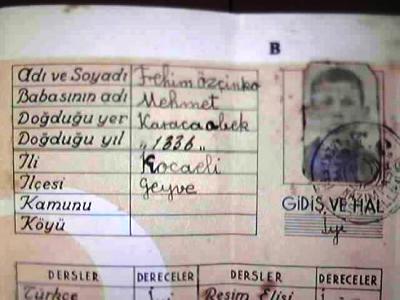 B
Adı ve Soyadı Frehim özçinko
Babasının adı Mehmet
Doğduğu yer Karacaabek
Doğduğu yıl „1336„
İli Kocaeli
İlçesi Geyve
Kamunu
Köyü
GİDİŞ VE HAL
İyi
DERSLER DERECELER DERSLER DERECELER
Türkçe İ Resim Elişi